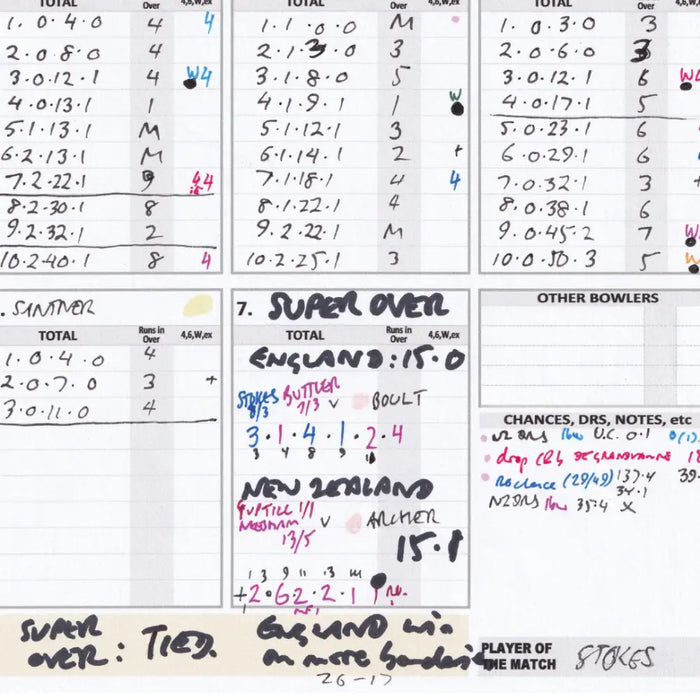 TOTAL Runs in Over 4,6,W,ex
1. 0.4.0 4 4
2.0.8.0 4
3.0.12.1 4 W4
4.0.13.1 1
5.1.13.1 M
6.2.13.1 M
7.2.22.1 9 44
8.2.30.1 8
9.2.32.1 2
10.2.40.1 8 4
TOTAL Over 4,6,W,ex
1.1.0.0 M
2.1.3.0 3
3.1.8.0 5
4.1.9.1 1 W
5.1.12.1 3
6.1.14.1 2 +
7.1.18.1 4 4
8.1.22.1 4
9.2.22.1 M
10.2.25.1 3
TOTAL Over 4,6,W,ex
1. 0.3.0 3
2.0.6.0 3
3.0.12.1 6 W
4.0.17.1 5
5.0.23.1 6
6.0.29.1 6
7.0.32.1 3
8.0.38.1 6
9.0.45.2 7 W
10.0.50.3 5 W
. SANTNER
TOTAL Runs in Over 4,6,W,ex
1. 0.4.0 4
2.0.7.0 3 +
3.0.11.0 4
7. SUPER OVER
TOTAL Runs in Over 4,6,W,ex
ENGLAND: 15.0
STOKES BUTTLER
8/3 7/3 v BOULT
3.1.4.1.2.4
3 4 8 9 11
NEW ZEALAND
GUPTILL 1/1
NEESHAM v ARCHER
13/5
15.1
1 3 9 11 13 14
+2.6.2.2.1 1 r.o.
SUPER OVER: TIED.
ENGLAND win
on more boundaries
26-17
OTHER BOWLERS
CHANCES, DRS, NOTES, etc
NZ DRS lbw U.C. 0.1
drop (2) DE GRANDHOMME
No chance (29/49) 137.4
34.1
NZ DRS lbw 35.4 x
PLAYER OF THE MATCH STOKES